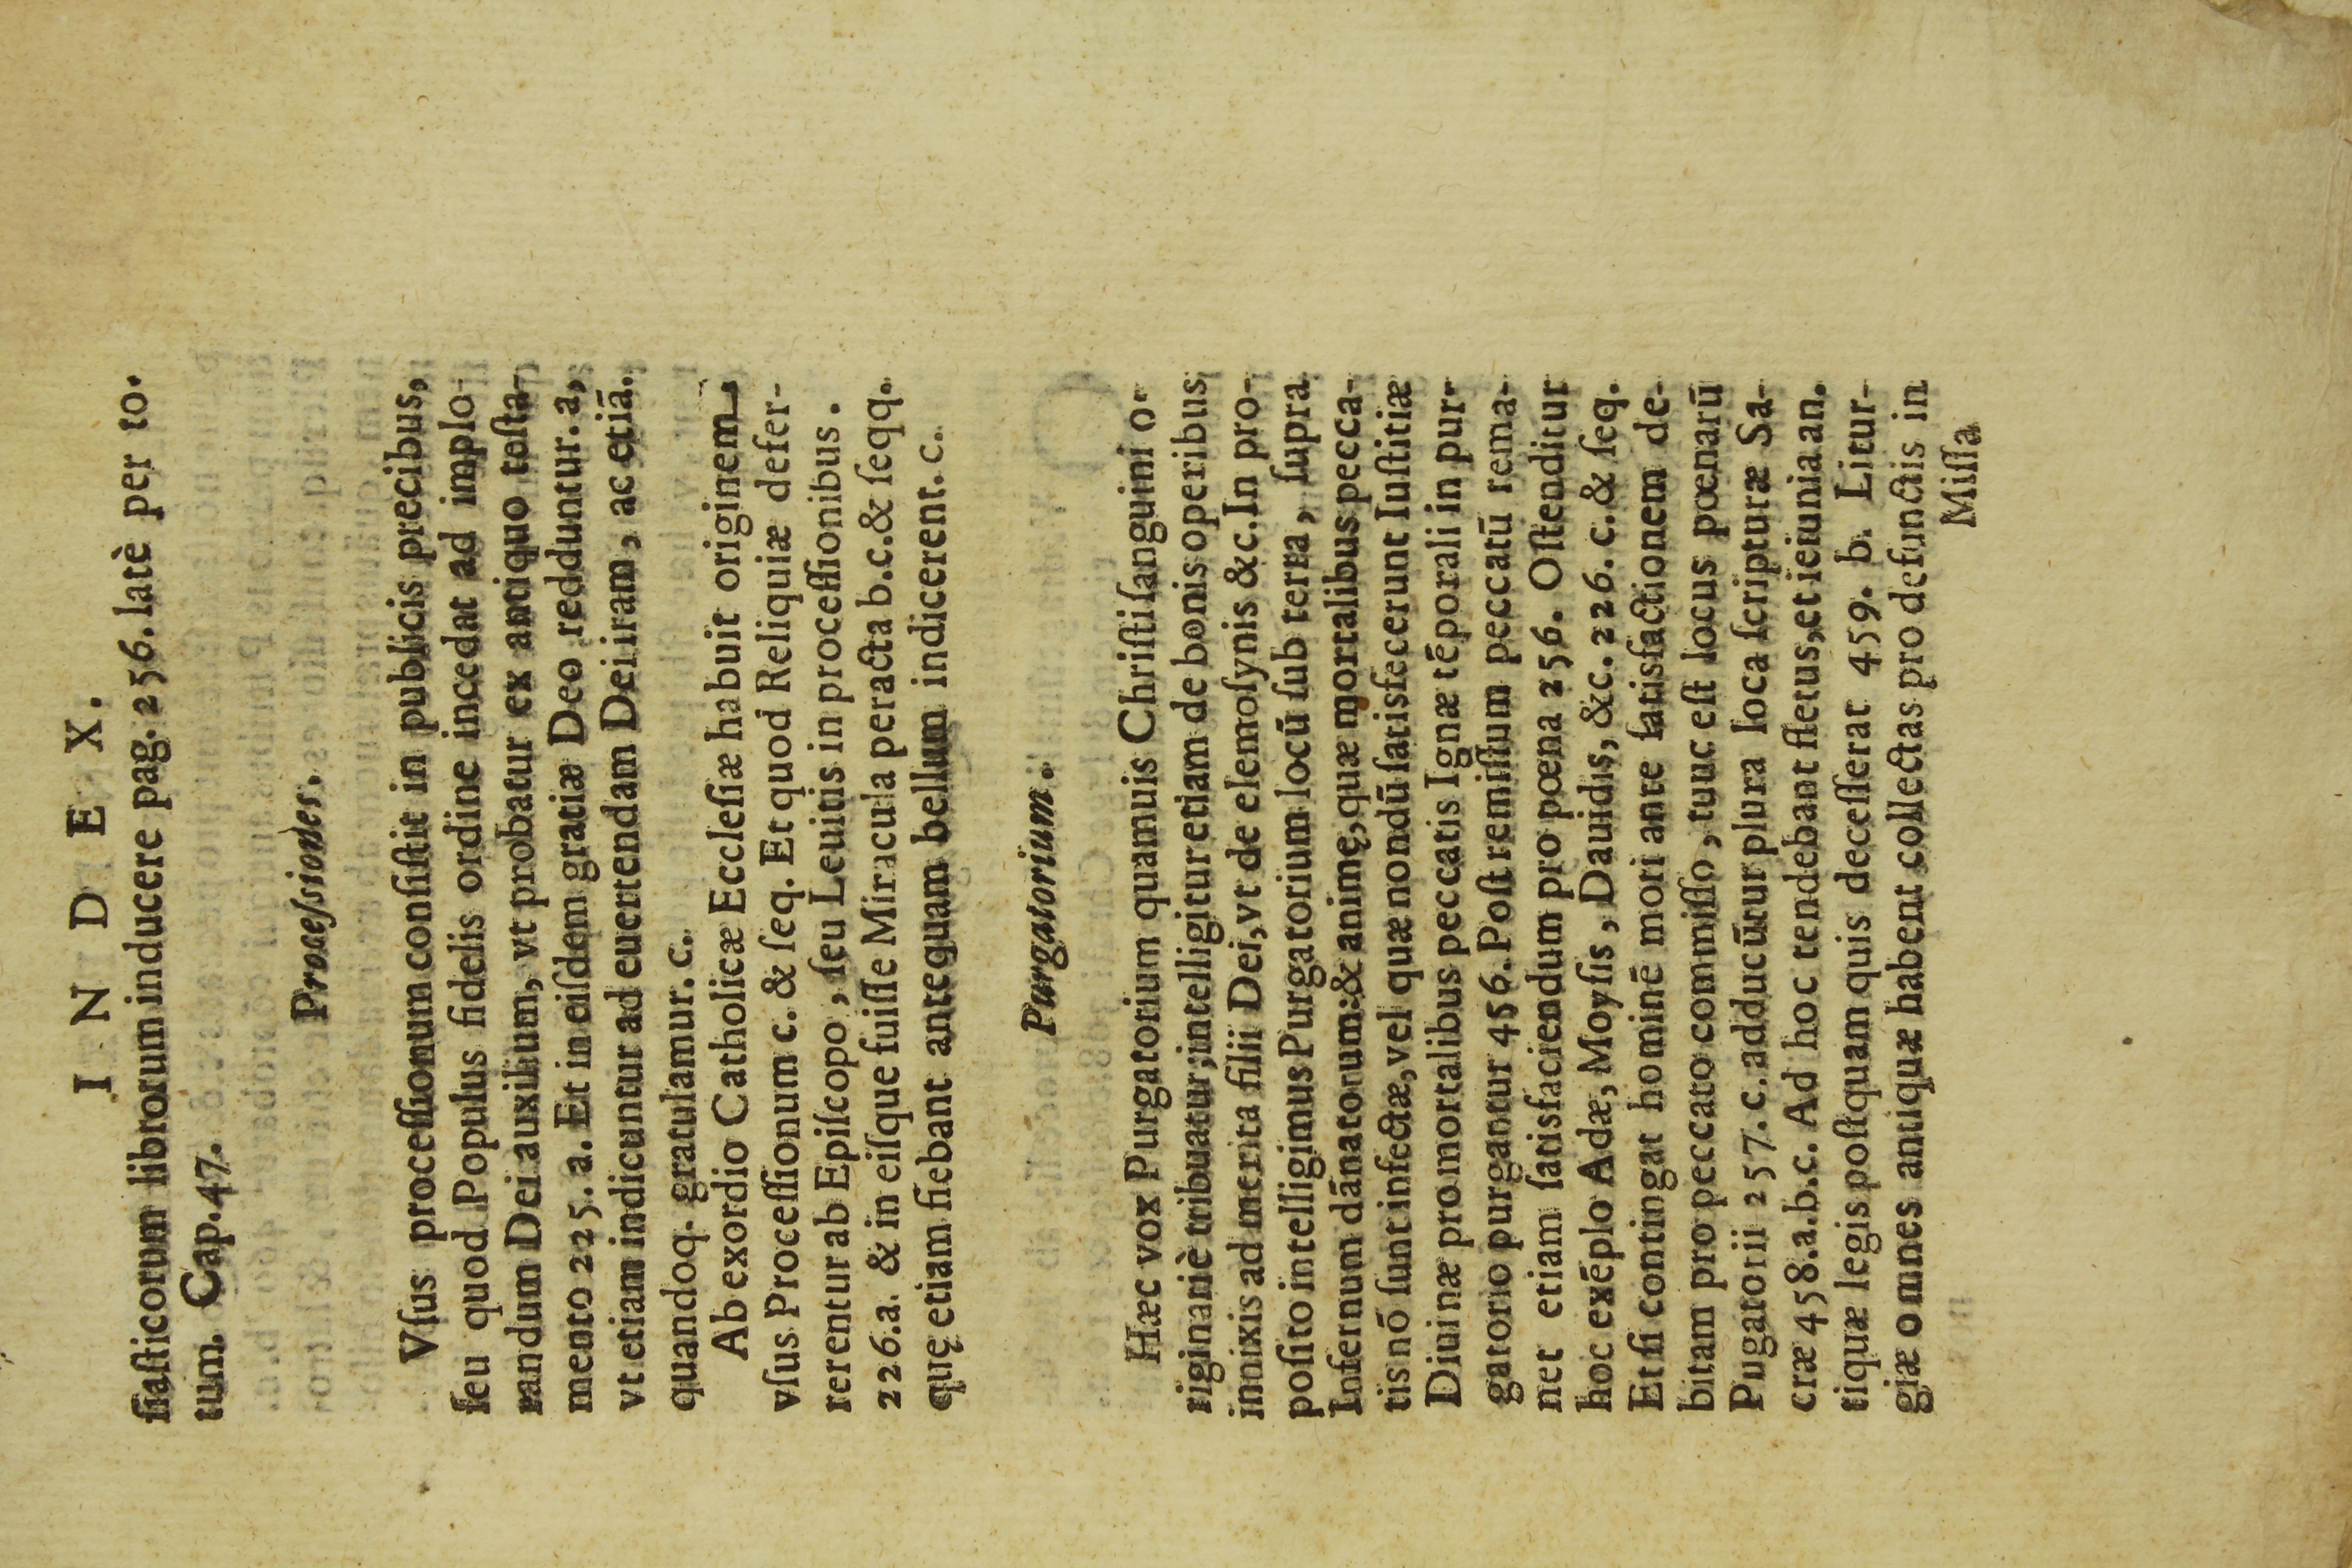 I N D E X.
ſiaſticorum librorum inducere pag. 256. latè per to.
tum. Cap. 47.
Proceſsiones.
Vſus proceſſionum conſiſtit in publicis precibus,
ſeu quod Populus fidelis ordine incedat ad implo-
randum Dei auxilium, vt probatur ex antiquo teſta-
mento 225. a. Et in eiſdem gratiæ Deo redduntur. a,
vt etiam indicuntur ad euertendam Dei iram, ac etiā.
quandoq. gratulamur. c.
Ab exordio Catholicæ Eccleſiæ habuit originem
vſus Proceſſionum c. & ſeq. Et quod Reliquiæ defer-
rerentur ab Epiſcopo, ſeu Leuitis in proceſſionibus.
226. a. & in eiſque fuiſſe Miracula peracta b.c.& ſeqq.
quę etiam fiebant antequam bellum indicerent. c.
Purgatorium.
Hæc vox Purgatorium quamuis Chriſti ſanguini o-
riginariè tribuatur; intelligitur etiam de bonis operibus
innixis ad merita filii Dei, vt de elemoſynis &c. In pro-
poſito intelligimus Purgatorium locū ſub terra, ſupra
Infernum dānatorum: & animę, quæ mortalibus pecca-
tis nō ſunt infectæ, vel quæ nondū ſatisfecerunt Iuſtitiæ
Diuinæ pro mortalibus peccatis Ignæ tēporali in pur-
gatorio purgantur 456. Poſt remiſſum peccatū rema-
net etiam ſatisfaciendum pro pœna 256. Oſtenditur
hoc exēplo Adæ, Moyſis, Dauidis, &c. 226. c. & ſeq.
Et ſi contingat hominē mori ante ſatisfactionem de-
bitam pro peccato commiſſo, tuuc eſt locus pœnarū
Pugatorii 257. c. adducūtur plura loca ſcripturæ Sa-
cræ 458. a.b.c. Ad hoc tendebant fletus, et ieiunia an.
tiquæ legis poſtquam quis deceſſerat 459. b. Litur-
giæ omnes antiquæ habent collectas pro defunctis in
Miſſa